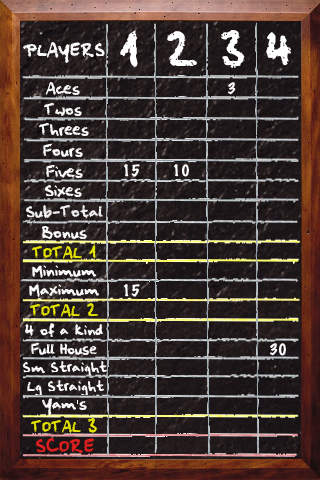 PLAYERS 1 2 3 4
Aces 3
Twos
Threes
Fours
Fives 15 10
Sixes
Sub-Total
Bonus
TOTAL 1
Minimum
Maximum 15
TOTAL 2
4 of a kind
Full House 30
Sm Straight
Lg Straight
Yam's
TOTAL 3
SCORE